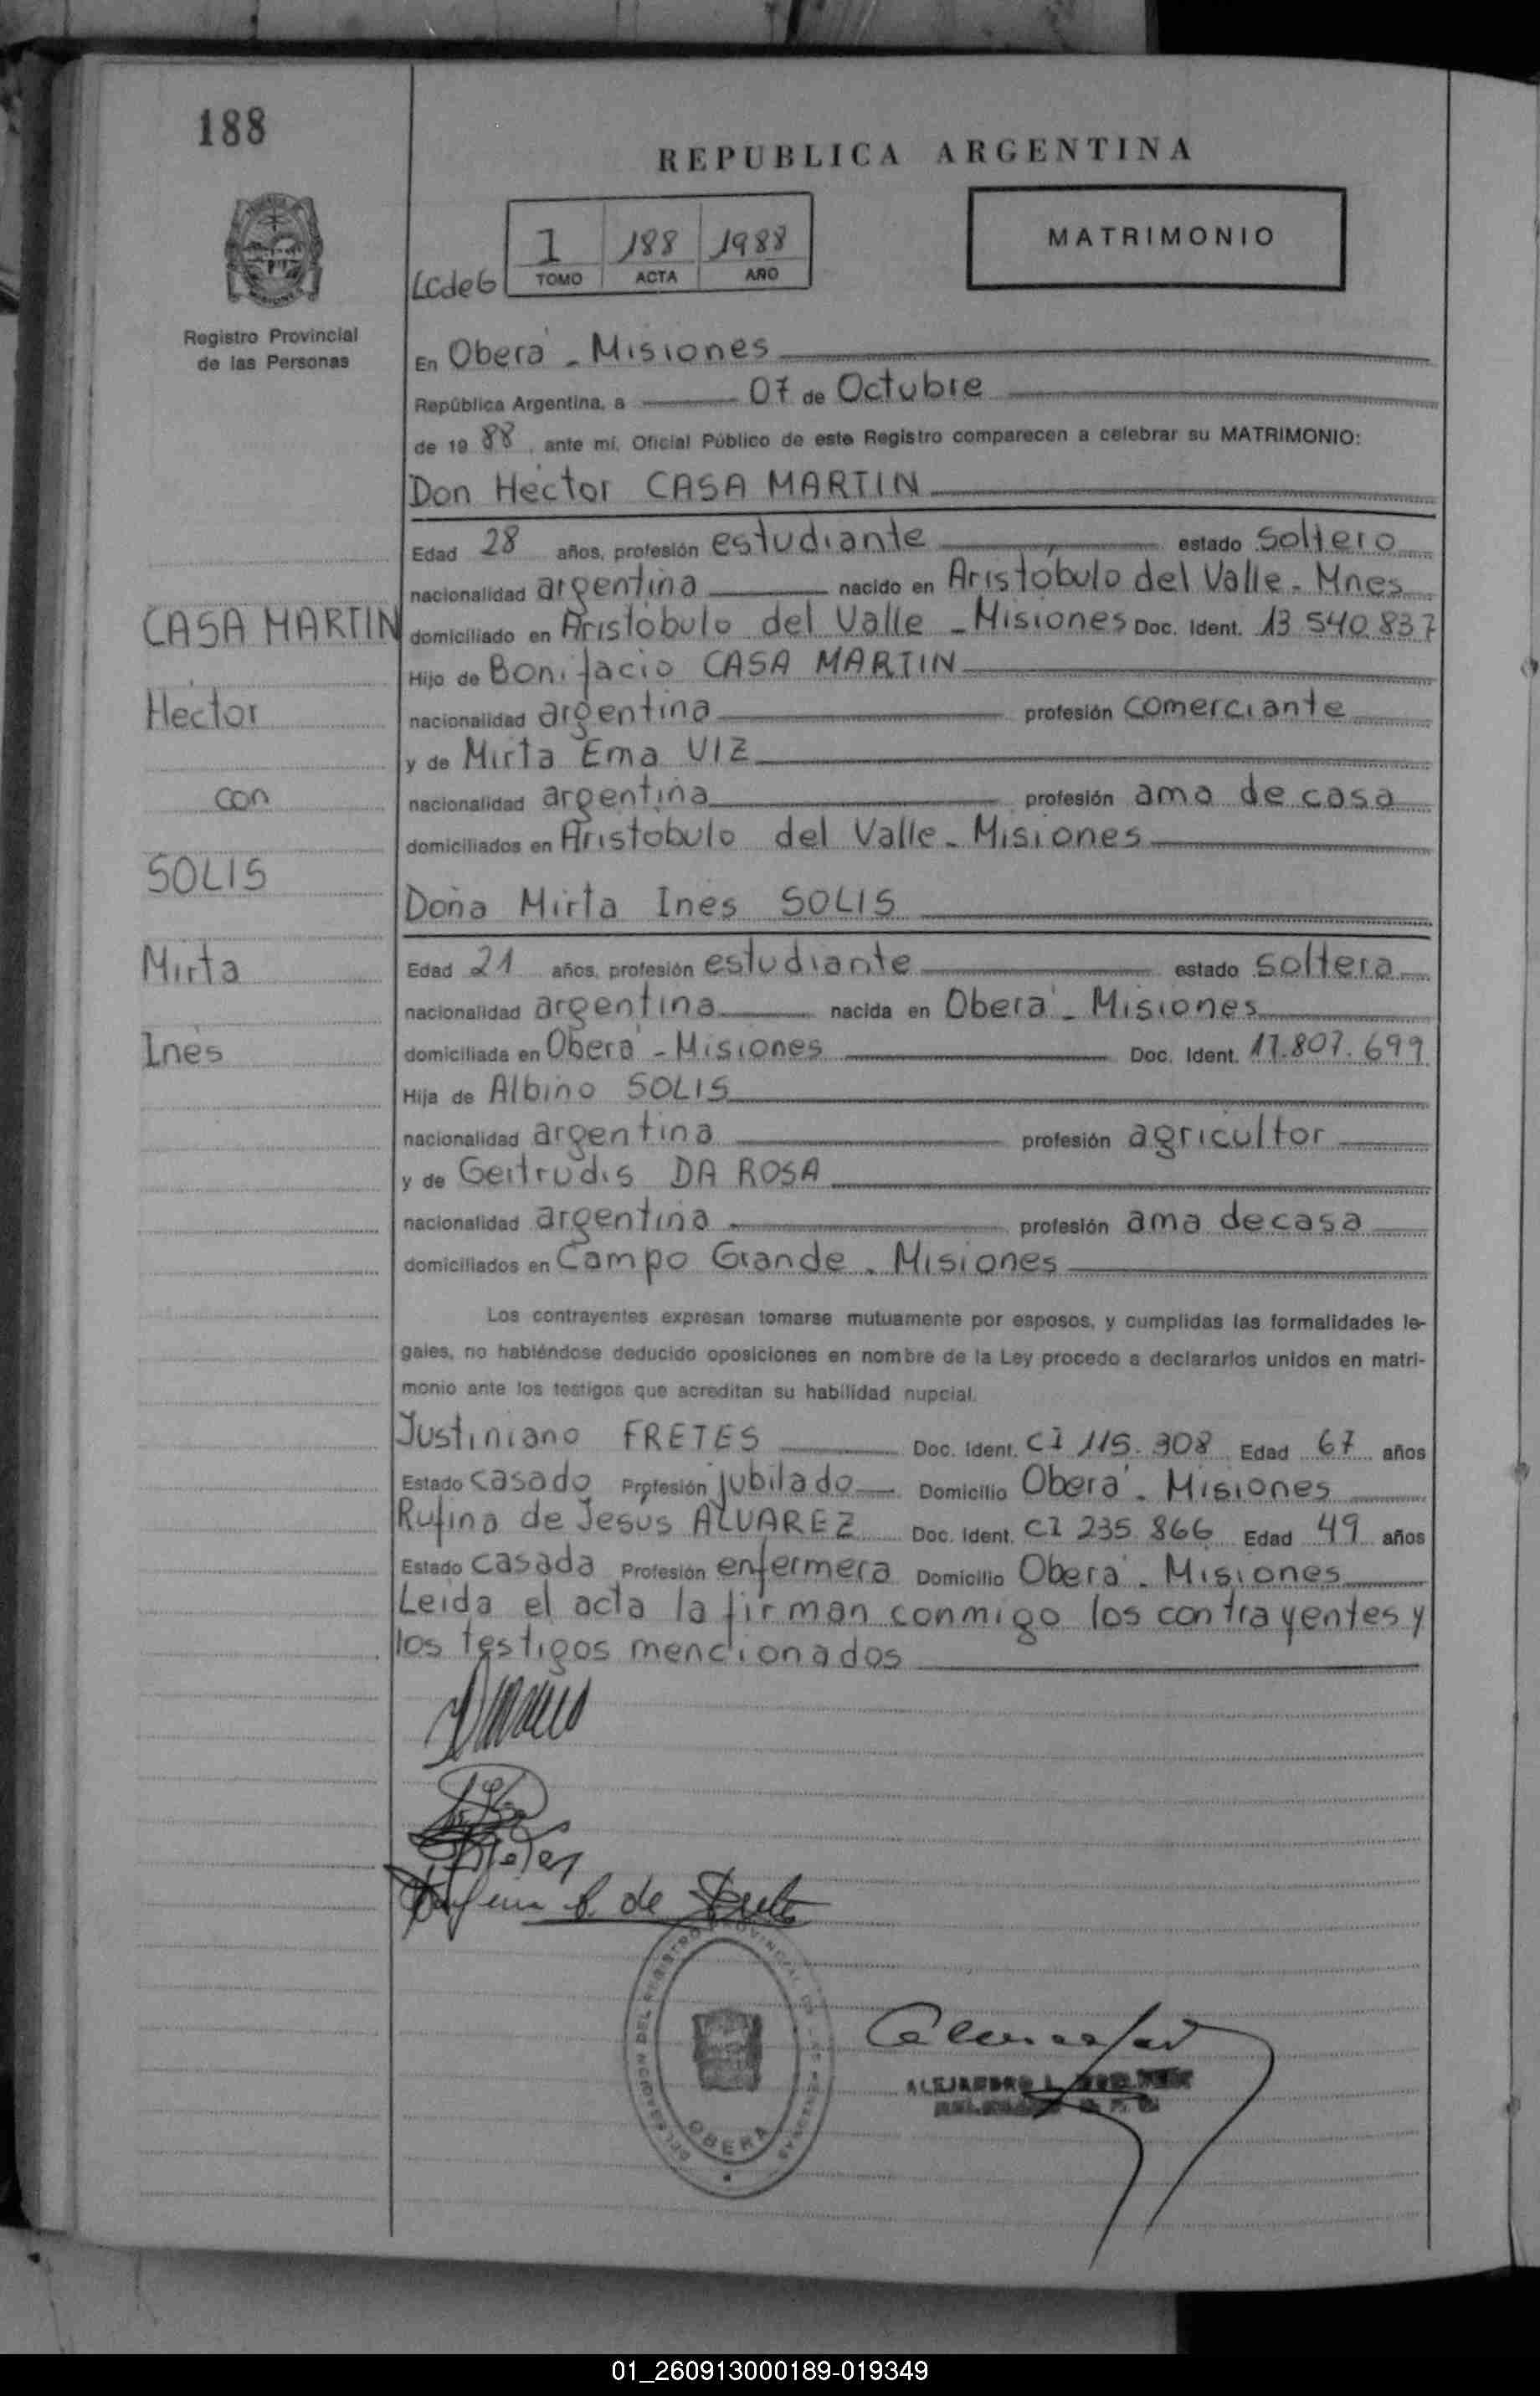 188
REPUBLICA ARGENTINA
1 188 1988
TOMO ACTA AÑO
LCdeG
MATRIMONIO
Registro Provincial
de las Personas
En Oberá - Misiones
República Argentina, a 07 de Octubre
de 19 88, ante mí, Oficial Público de este Registro comparecen a celebrar su MATRIMONIO:
Don Hector CASA MARTIN
Edad 28 años, profesión estudiante estado soltero
nacionalidad argentina nacido en Aristóbulo del Valle - Mnes
CASA MARTIN
domiciliado en Aristóbulo del Valle - Misiones Doc. Ident. 13.540.837
Hijo de Bonifacio CASA MARTIN
Hector
nacionalidad argentina profesión comerciante
y de Mirta Ema VIZ
con
nacionalidad argentina profesión ama de casa
domiciliados en Aristóbulo del Valle - Misiones
SOLIS
Doña Mirta Inés SOLIS
Mirta
Edad 21 años, profesión estudiante estado soltera
nacionalidad argentina nacida en Oberá - Misiones
Inés
domiciliada en Oberá - Misiones Doc. Ident. 17.807.699
Hija de Albino SOLIS
nacionalidad argentina profesión agricultor
y de Gertrudis DA ROSA
nacionalidad argentina profesión ama de casa
domiciliados en Campo Grande - Misiones
Los contrayentes expresan tomarse mutuamente por esposos, y cumplidas las formalidades le-
gales, no habiéndose deducido oposiciones en nombre de la Ley procedo a declararlos unidos en matri-
monio ante los testigos que acreditan su habilidad nupcial.
Justiniano FRETES Doc. Ident. CI 115.308 Edad 67 años
Estado casado Profesión jubilado Domicilio Oberá - Misiones
Rufina de Jesús ALVAREZ Doc. Ident. CI 235.866 Edad 49 años
Estado casada Profesión enfermera Domicilio Oberá - Misiones
Leida el acta la firman conmigo los contrayentes y
los testigos mencionados
DELEGACION DEL REGISTRO PROVINCIAL DE LAS PERSONAS
OBERA
ALEJANDRO L.
01_260913000189-019349